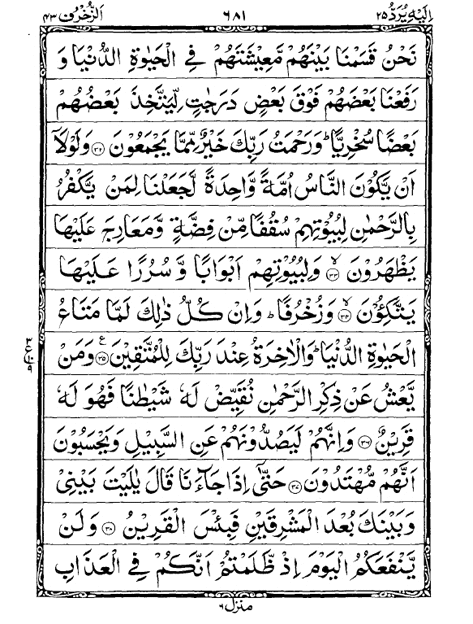 اليه يرد ٢٥ ٦٨١ الزخرف ٤٣
نَحْنُ قَسَمْنَا بَيْنَهُمْ مَّعِيْشَتَهُمْ فِي الْحَيٰوةِ الدُّنْيَا وَ
رَفَعْنَا بَعْضَهُمْ فَوْقَ بَعْضٍ دَرَجٰتٍ لِّيَتَّخِذَ بَعْضُهُمْ
بَعْضًا سُخْرِيًّا ؕ وَرَحْمَتُ رَبِّكَ خَيْرٌ مِّمَّا يَجْمَعُوْنَ ﴿۳۲﴾ وَلَوْلَاۤ
اَنْ يَّكُوْنَ النَّاسُ اُمَّةً وَّاحِدَةً لَّجَعَلْنَا لِمَنْ يَّكْفُرُ
بِالرَّحْمٰنِ لِبُيُوْتِهِمْ سُقُفًا مِّنْ فِضَّةٍ وَّمَعَارِجَ عَلَيْهَا
يَظْهَرُوْنَ ﴿۳۳﴾ۙ وَلِبُيُوْتِهِمْ اَبْوَابًا وَّسُرُرًا عَلَيْهَا
يَتَّكِـُٔوْنَ ﴿۳۴﴾ۙ وَزُخْرُفًا ؕ وَاِنْ كُلُّ ذٰلِكَ لَمَّا مَتَاعُ
الْحَيٰوةِ الدُّنْيَا ؕ وَالْاٰخِرَةُ عِنْدَ رَبِّكَ لِلْمُتَّقِيْنَ ﴿۳۵﴾ۧ وَمَنْ
يَّعْشُ عَنْ ذِكْرِ الرَّحْمٰنِ نُقَيِّضْ لَهٗ شَيْطٰنًا فَهُوَ لَهٗ
قَرِيْنٌ ﴿۳۶﴾ وَاِنَّهُمْ لَيَصُدُّوْنَهُمْ عَنِ السَّبِيْلِ وَيَحْسَبُوْنَ
اَنَّهُمْ مُّهْتَدُوْنَ ﴿۳۷﴾ حَتّٰۤى اِذَا جَآءَنَا قَالَ يٰلَيْتَ بَيْنِيْ
وَبَيْنَكَ بُعْدَ الْمَشْرِقَيْنِ فَبِئْسَ الْقَرِيْنُ ﴿۳۸﴾ وَلَنْ
يَّنْفَعَكُمُ الْيَوْمَ اِذْ ظَّلَمْتُمْ اَنَّكُمْ فِي الْعَذَابِ
منزل ٦